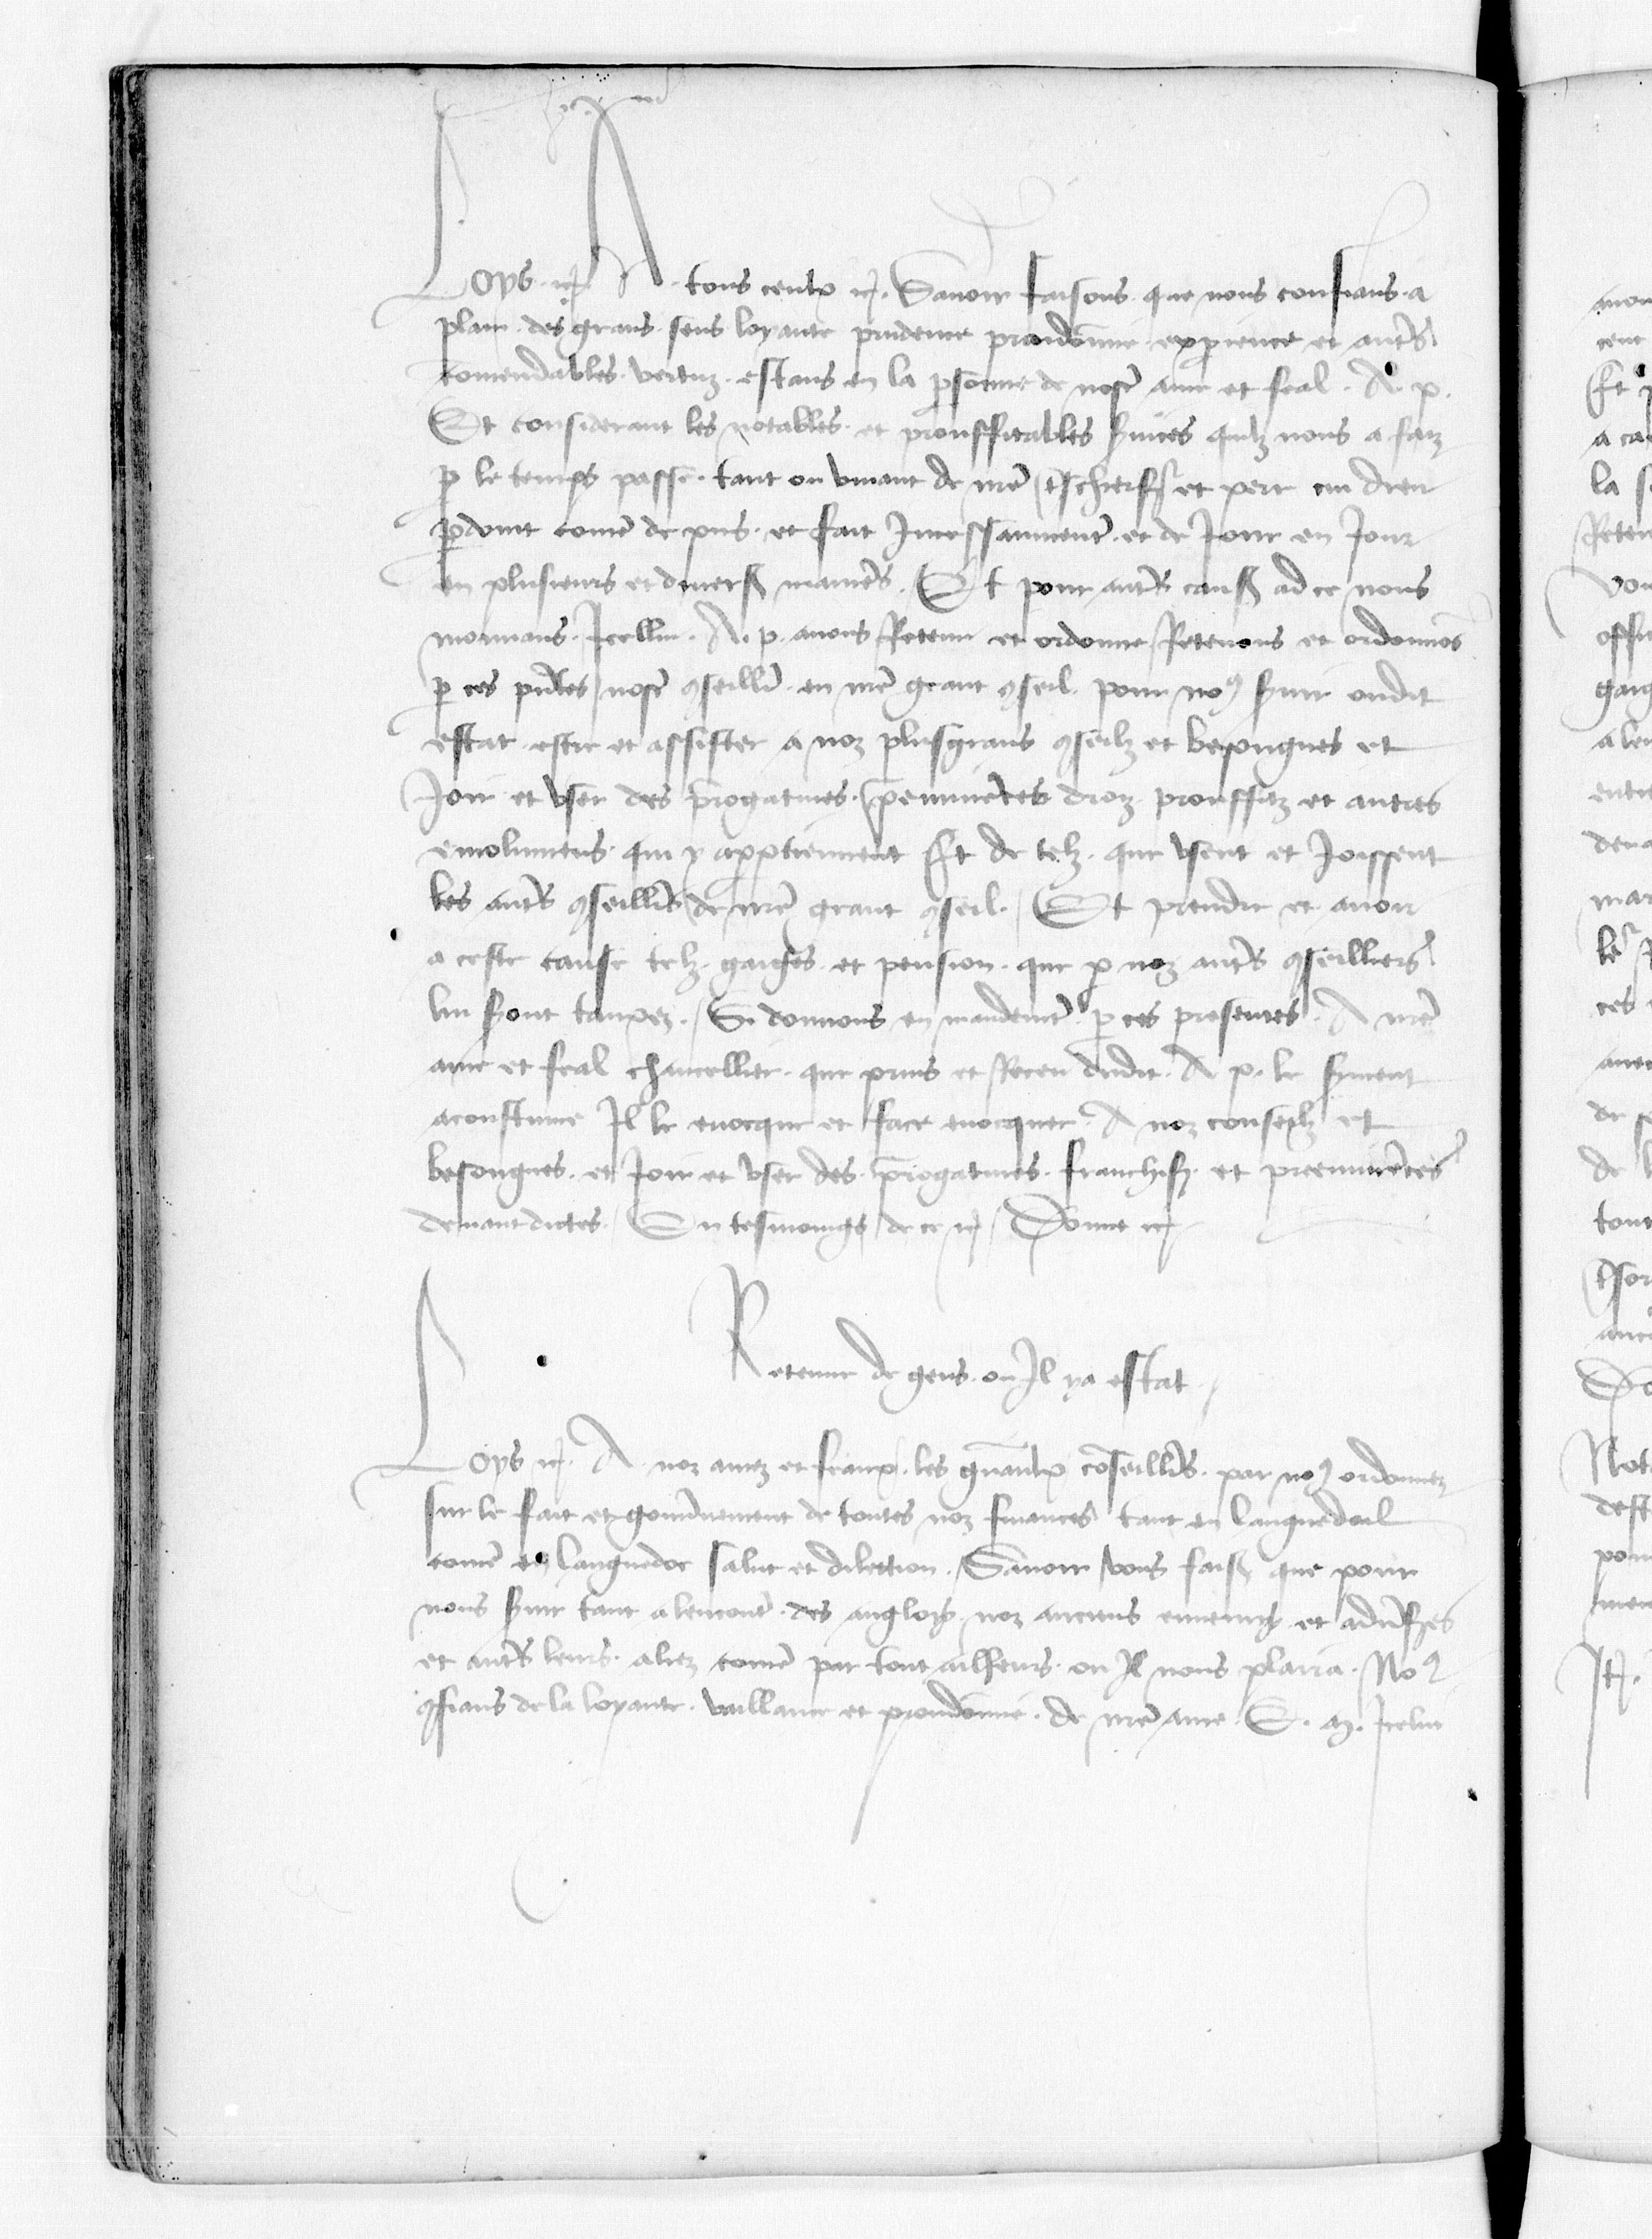 Loys etc. A tous ceulx etc. Savoir faisons que nous confians a
plain des grans sens loyaute prudence preudomie experience et autrs
comendables vertuz estans en la psonne de nostre ame et feal A. p.
Et considerant les notables et prouffitables svices quilz nous a faiz
p le temps passe tant ou vivant de nre tschier sr et pere cui dieu
pdoint come depuis et fait Incessanment et de Jour en Jour
en plusieurs et diverss manieres Et pour autrs causs ad ce nous
mouvans Icellui A. p. avons Retenu et ordonne Retenons et ordonnos
p ces pntes nostre 9seillier en nre grant 9seil pour no9 svir oudit
estat estre et assister a noz plusgrans 9seilz et besongnes et
Joir et user des progatives preeminences droiz prouffitz et autres
emolumens qui y apptiennent Et de telz que usent et Joissent
les autrs 9seilliers de nre grant 9seil Et prendre et avoir
a ceste cause telz gaiges et pension que p noz autrs 9seilliers
lui sont tauxez Si donnons en mandemt p ces presentes A nre
ame et feal chancellier que prins et Receu dudit A. p. le syment
acoustume Il le evocque et face evocquer A noz conseilz et
besongnes et Joir et user des progatives franchiss et preeminences
devantdictes En tesmoings de ce etc Donne etc
Retenue de gens ou Il ya estat
Loys etc. A noz amez et feaux les gnaulx coseilliers par no9 ordonnez
sur le fait et gouvnement de toutes noz finances tant en languedoil
come en languedoc salut et dilection Savoir vous faiss que pour
nous svir tant alencontre des anglois noz anciens ennemis et advsres
et autrs leurs aliez come par tout ailleurs ou Il nous plaira No9
9fians de la loyaute vaillance et preudomie de nre ame E. m. Icelui